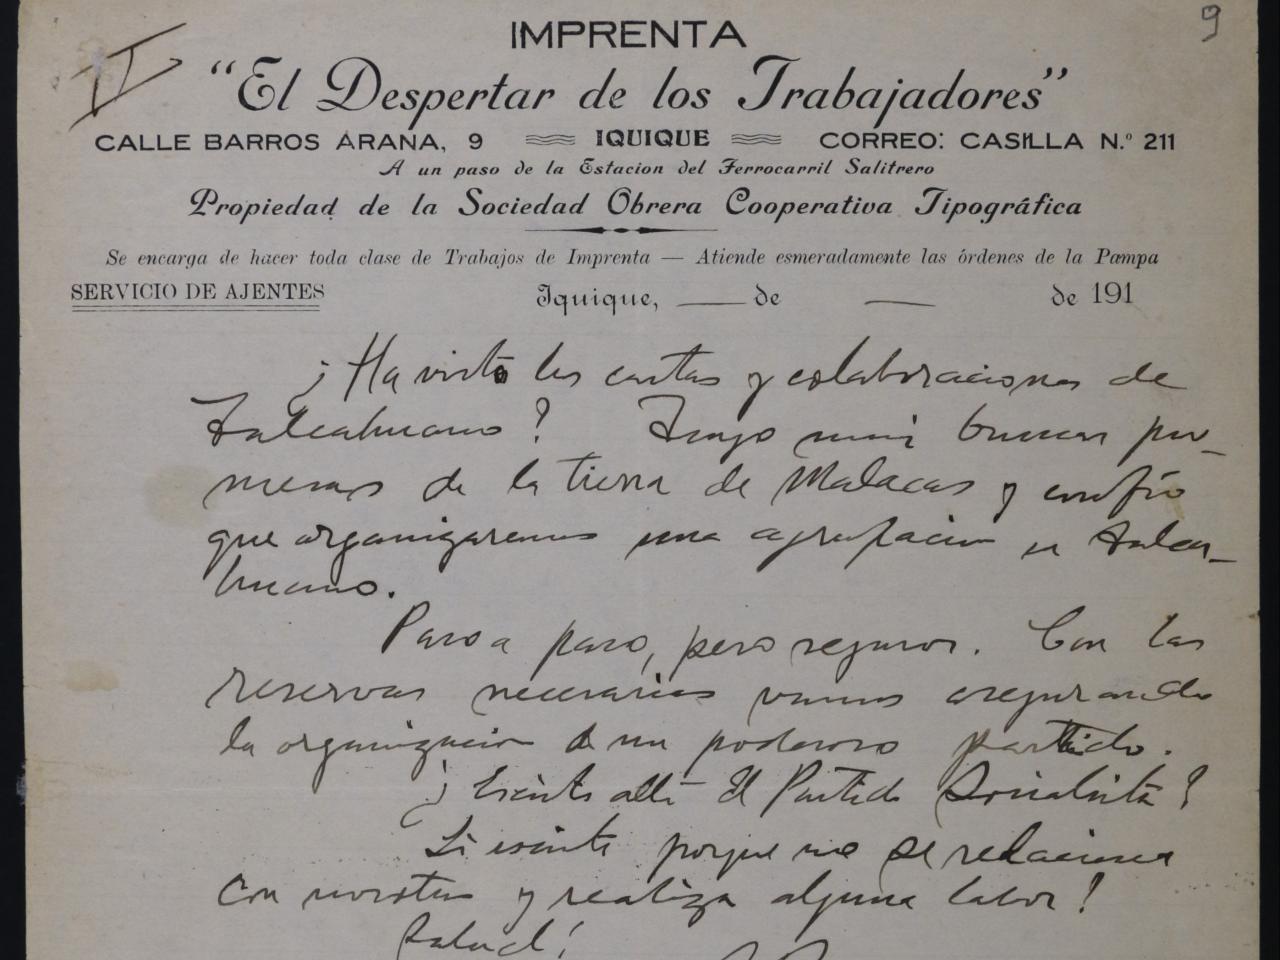 II
9
IMPRENTA
"El Despertar de los Trabajadores"
CALLE BARROS ARANA, 9 IQUIQUE CORREO: CASILLA N.º 211
A un paso de la Estacion del Ferrocarril Salitrero
Propiedad de la Sociedad Obrera Cooperativa Tipográfica
Se encarga de hacer toda clase de Trabajos de Imprenta — Atiende esmeradamente las órdenes de la Pampa
SERVICIO DE AJENTES
Iquique, de de 191
¿Ha visto las cartas y colaboraciones de
Talcahuano? Tengo mui buenas pro-
mesas de la tierra de Malacas y confío
que organizaremos una agrupacion en Talca-
huano.
Paso a paso, pero seguros. Con las
reservas necesarias vamos asegurando
la organizacion de un poderoso partido.
¿Existe allá el Partido Socialista?
Si existe porque no se relaciona
con nosotros y realiza alguna labor?
Salud!